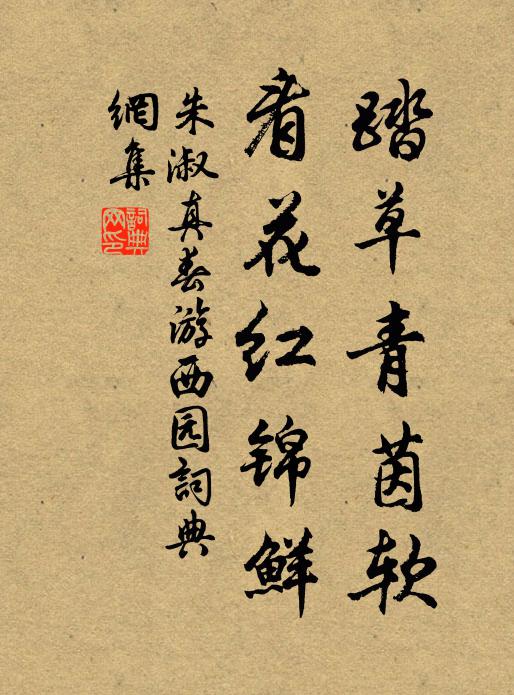 踏草青茵软
看花红锦鲜
朱淑真春游西园詞典
網集
詞典
网印